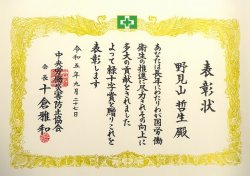 表彰状
野見山哲生殿
あなたは長年にわたりわが国労働
衛生の推進に尽力されその向上に
多大の貢献をされました
よって緑十字賞を贈りこれを
表彰します
令和五年九月二十七日
中央労働災害防止協会
会長 十倉雅和